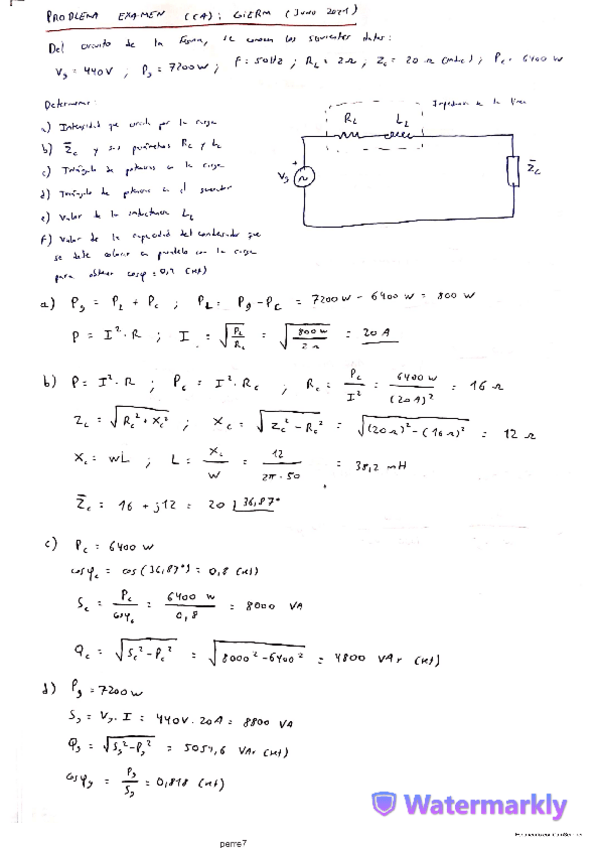 PROBLEMA EXAMEN (CA): GIERM (JUNIO 2021)
Del circuito de la figura, se conocen los siguientes datos:
Vg = 440V ; Pg = 7200W ; f = 50Hz ; RL = 2Ω ; Zc = 20 Ω (indc) ; Pc = 6400 W
Determinar:
a) Intensidad que circula por la carga
b) Z̄c y sus parámetros Rc y Lc
c) Triángulo de potencias en la carga
d) Triángulo de potencias en el generador
e) Valor de la inductancia LL
f) Valor de la capacidad del condensador que
se debe colocar en paralelo con la carga
para obtener cosφ = 0,9 (ind)
Impedancia de la línea
RL LL
Vg
+
~
Z̄c
a) Pg = PL + Pc ; PL = Pg - Pc = 7200W - 6400W = 800 W
P = I²·R ; I = √(PL/RL) = √(800 W/2 Ω) = 20 A
b) P = I²·R ; Pc = I²·Rc ; Rc = Pc/I² = 6400 W/(20 A)² = 16 Ω
Zc = √(Rc² + Xc²) ; Xc = √(Zc² - Rc²) = √((20 Ω)² - (16 Ω)²) = 12 Ω
Xc = wL ; L = Xc/W = 12/(2π·50) = 38,2 mH
Z̄c = 16 + j12 = 20 |36,87°
c) Pc = 6400 W
cosφc = cos(36,87°) = 0,8 (ind)
Sc = Pc/cosφc = 6400 W/0,8 = 8000 VA
Qc = √(Sc² - Pc²) = √(8000² - 6400²) = 4800 VAr (ind)
d) Pg = 7200W
Sg = Vg·I = 440V·20A = 8800 VA
Qg = √(Sg² - Pg²) = 5059,6 VAr (ind)
cosφg = Pg/Sg = 0,818 (ind)
Watermarkly
perre7